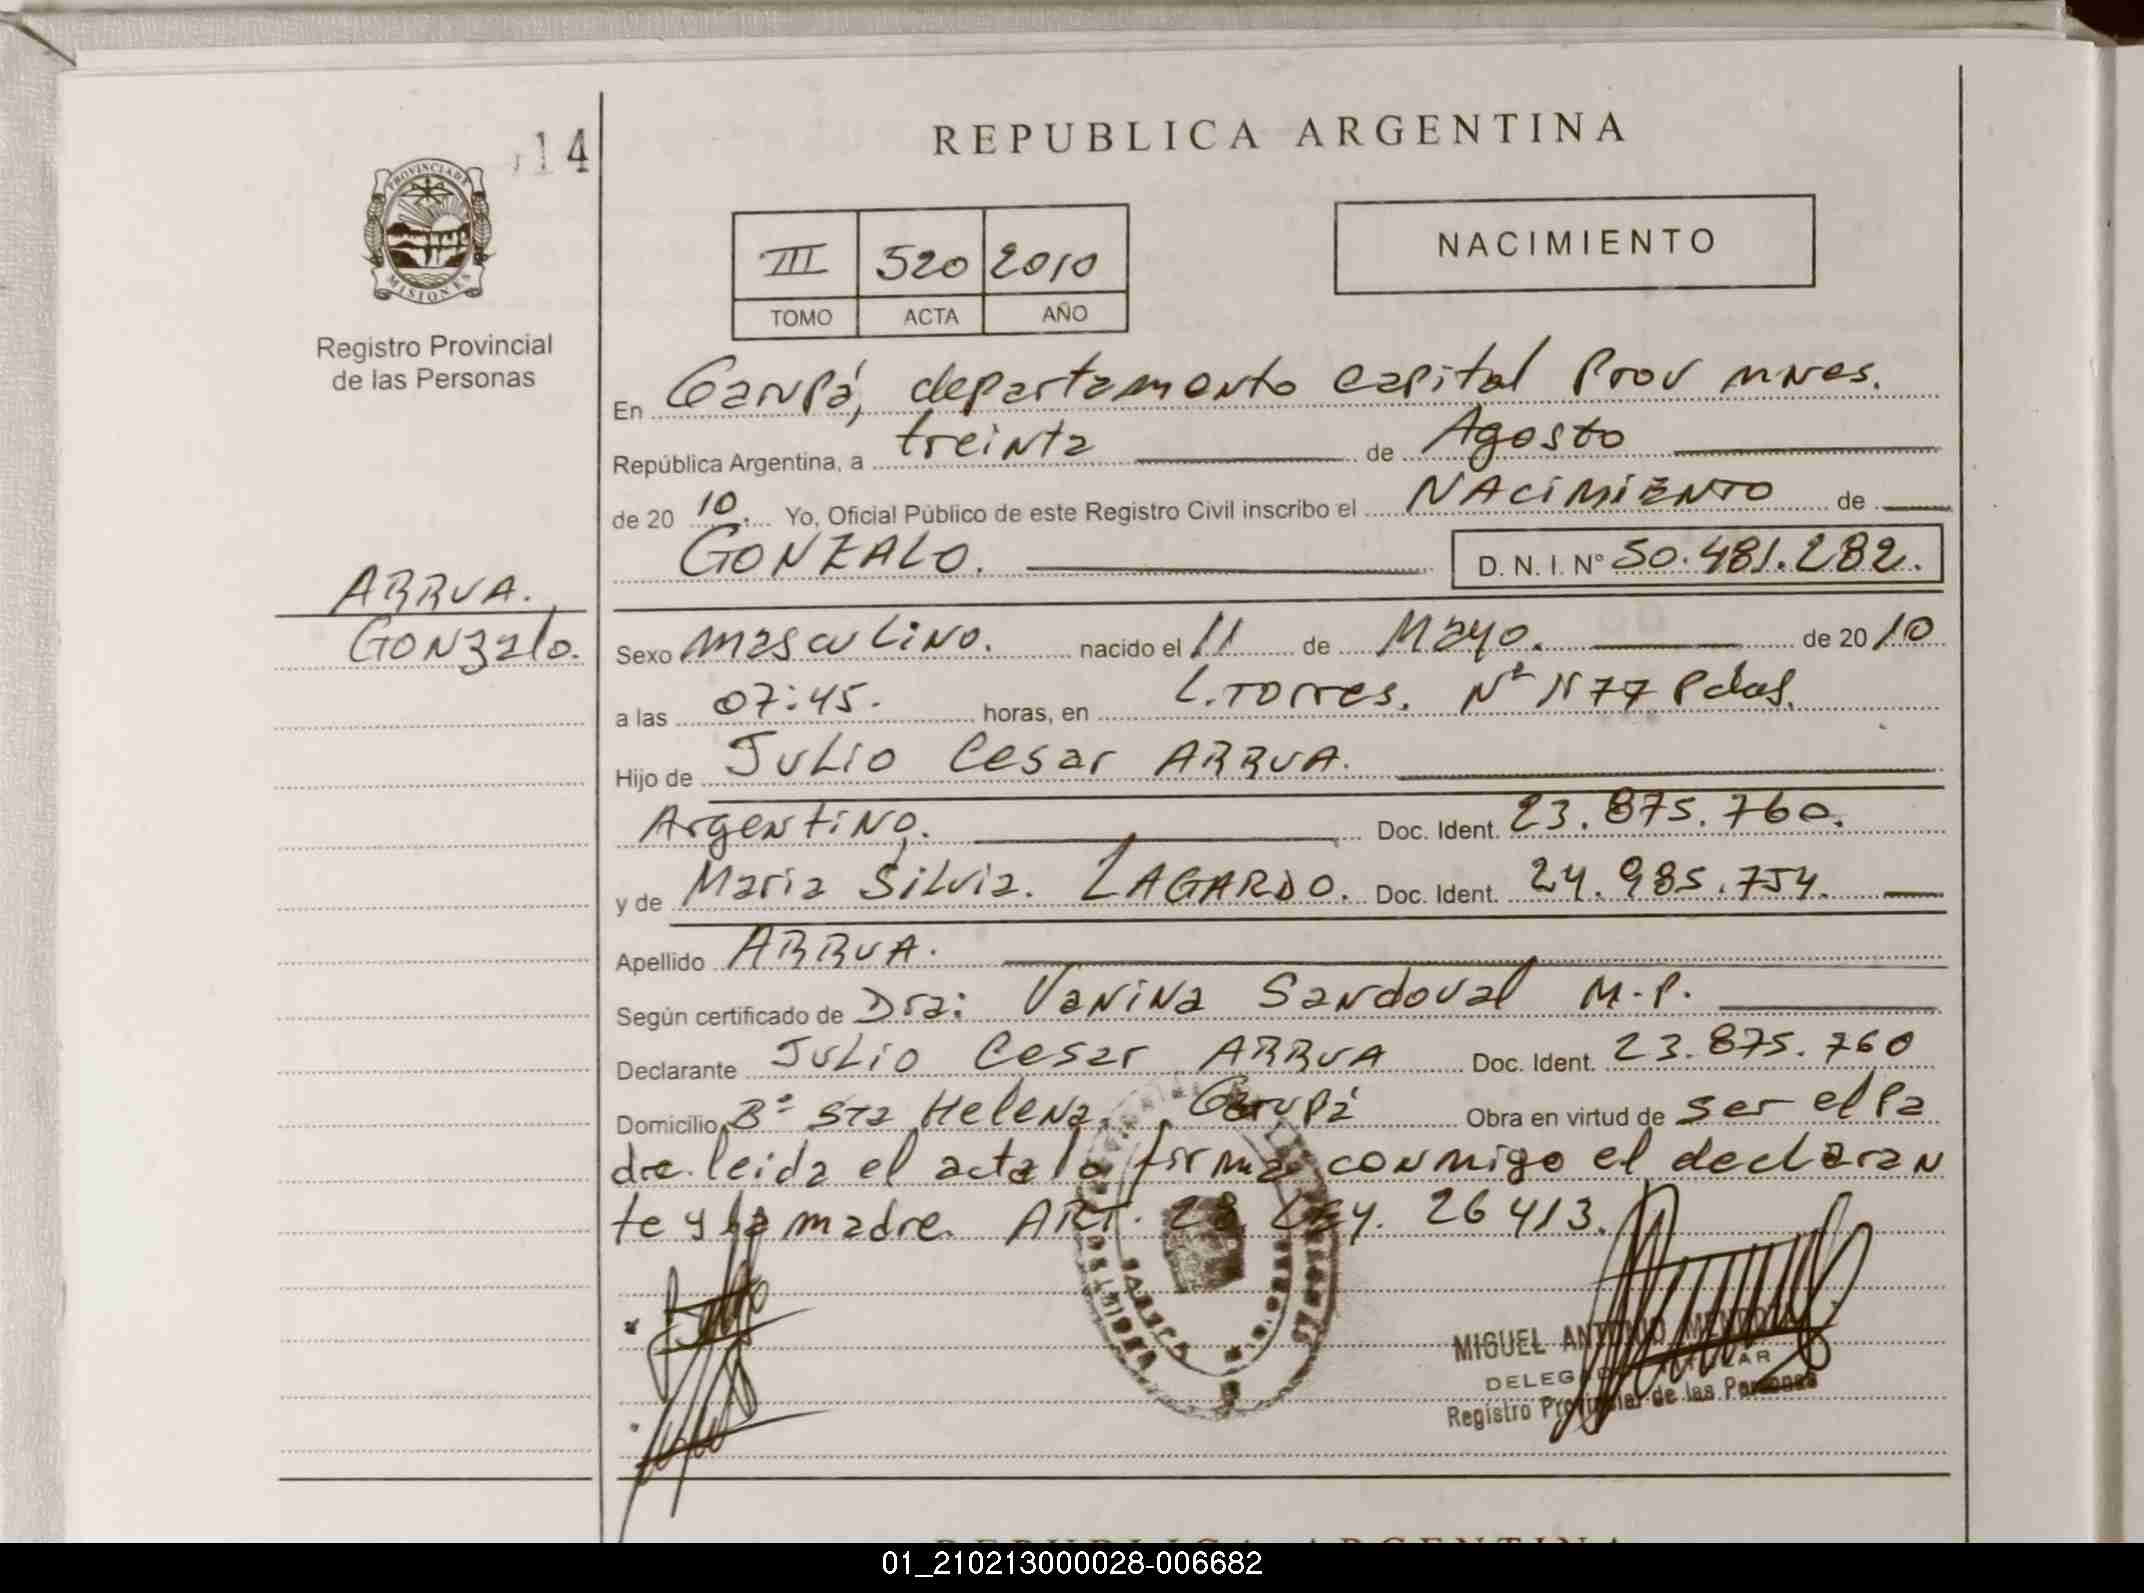 14
REPUBLICA ARGENTINA
PROVINCIA DE
MISIONES
Registro Provincial
de las Personas
III 520 2010
TOMO ACTA AÑO
NACIMIENTO
En Garupá, departamento capital Prov mnes.
República Argentina, a treinta de Agosto
de 2010. Yo, Oficial Público de este Registro Civil inscribo el NACIMIENTO de
GONZALO. D. N. I. N° 50.481.282.
ARRUA.
Gonzalo.
Sexo masculino. nacido el 11 de Mayo. de 2010
a las 07:45. horas, en L. Torres. Pdas.
Hijo de Julio Cesar ARRUA.
Argentino. Doc. Ident. 23.875.760.
y de Maria Silvia. LAGARDO. Doc. Ident. 24.985.754.
Apellido ARRUA.
Según certificado de Dra: Vanina Sandoval M.P.
Declarante Julio Cesar ARRUA Doc. Ident. 23.875.760
Domicilio B° Sta Helena, Garupá Obra en virtud de ser el Pa
dre. leida el acta la firma conmigo el declaran
te y la madre. ART. 28 Ley. 26413.
MIGUEL ANTONIO
Registro Provincial de las Personas
REPUBLICA ARGENTINA
01_210213000028-006682